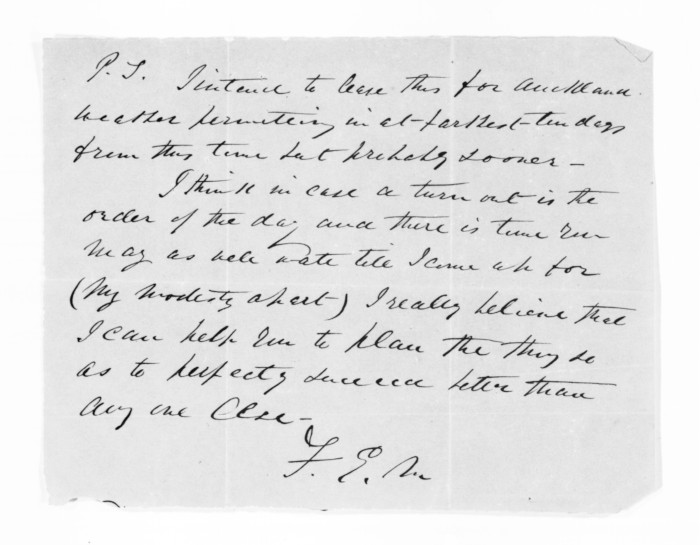 P.S. I intend to leave this for Auckland
weather permitting in at farthest ten days
from this time but probably sooner -
I think in case a turn out is the
order of the day and there is time you
may as well wate till I come up for
(My modesty apart) I really believe that
I can help you to plan the thing so
as to perfectly succeed better than
any one Else -
F. E. M